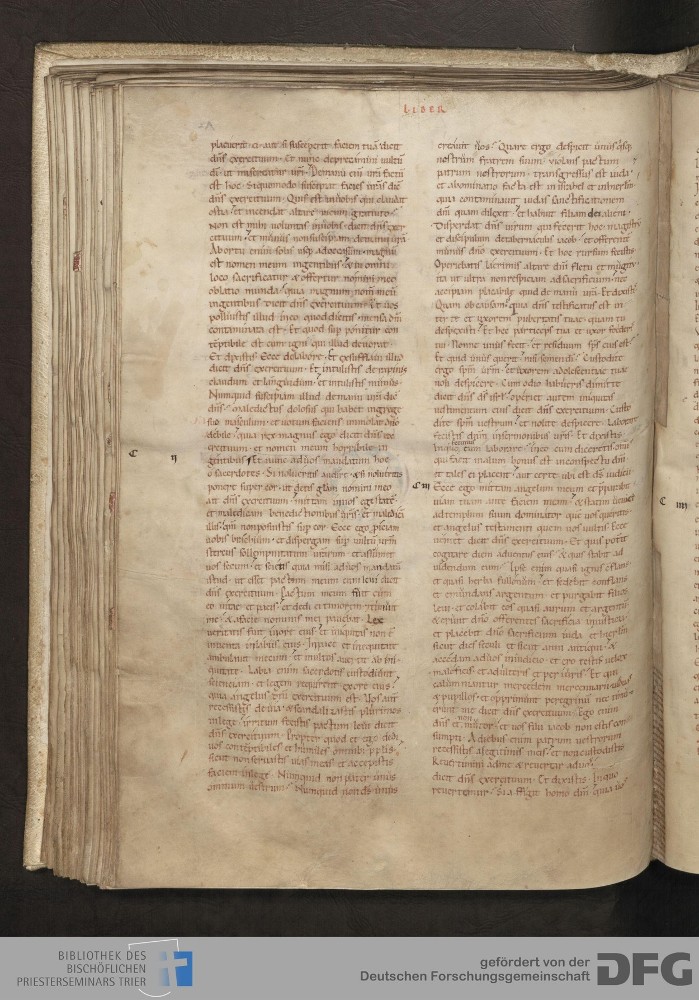 LIBER
placuerit ei aut si susceperit faciem tuã dicit
dñs exercituum. Et nunc deprecamini uultũ
dĩ ut misereatur ur̃i. De manu eñi ur̃a factũ
est hoc. Si quomodo suscipiat facies ur̃as dic̃
dñs exercituum. Quis est in uobis qui claudat
ostia. et incendat altare meum gratuito.
Non est mihi uoluntas in uobis. dicit dñs exer
cituum. et munus non suscipiam de manu ur̃a
Ab ortu enim solis usq; ad occasum. magnũ
est nomen meum in gentibus. & in omni
loco sacrificatur & offertur nomini meo
oblatio munda. quia magnum nomen meũ
in gentibus dicit dñs exercituum. Et uos
polluistis illud in eo quod dicitis. mensa dñi
contaminata est. Et quod sup ponitur con
temptibile est cum igni qui illud deuorat.
Et dixistis. Ecce de labore. et exsufflastis illud
dicit dñs exercituum. Et intulistis de rapinis
claudum et languidum. et intulistis munus.
Numquid suscipiam illud de manu ur̃a dic̃
dñs. Maledictus dolosus qui habet in grege
suo masculum. et uotum faciens immolat dño
debile. quia rex magnus ego dicit dñs ex
ercituum. et nomen meum horribile in
C II
gentibus. Et nunc ad uos mandatum hoc
o sacerdotes. Si nolueritis audire. & si nolueritis
ponere super cor. ut detis glam nomini meo
ait dñs exercituum. mittam in uos egestatẽ.
et maledicam benedictionibus ur̃is. et maledicã
illis. qm̃ non posuistis sup cor. Ecce ego piciam
uobis brachium. et dispergam sup uultũ ur̃m
stercus sollempnitatum urarum. et assumet
uos secum. et scietis quia misi ad uos mandatũ
istud. ut esset pactum meum cum leui dicit
dñs exercituum. Pactum meum fuit cum
eo uitae et pacis. et dedi ei timorem et timuit
me. & a facie nominis mei pauebat. Lex
ueritatis fuit in ore eius. et iniquitas non ẽ
inuenta in labiis eius. In pace et in equitate
ambulauit mecum. et multos auertit ab ini
quitate. Labia enim sacerdotis custodient
scientiam. et legem requirent ex ore eius.
quia angelus dñi exercituum est. Uos aut
recessistis de uia. & scandalizastis plurimos
in lege. irritum fecistis pactum leui dicit
dñs exercituum. Propter quod et ego dedi
uos contẽptibiles et humiles omnibus pplis.
sicut non seruastis uias meas. et accepistis
faciem in lege. Numquid non pater unus
omnium nostrum. Numquid non ds unus
creauit nos. Quare ergo despicit unus quisq;
nostrum fratrem suum. uiolans pactum
patrum nostrorum. transgressus est iuda.
et abominatio facta est in israhel et in hierlm.
quia contaminauit iudas sanctificationem
dñi quam dilexit. et habuit filiam dei alieni.
Disperdat dñs uirum qui fecerit hoc magistrũ
et discipulum de tabernaculis iacob. et offerentẽ
munus dño exercituum. Et hoc rursum fecistis.
Operiebatis lacrimis altare dñi fletu et mugitu.
ita ut ultra non respiciam ad sacrificium. nec
accipiam placabile quid de manu ur̃a. Et dixistis.
Quam ob causam. quia dñs testificatus est in
ter te et uxorem pubertatis tuae. quam tu
despexisti. Et hec particeps tua et uxor foederis
tui. Nonne unus fecit. et residuum sps eius est.
Et quid unus querit. nisi semen dĩ. Custodite
ergo spm̃ ur̃m. et uxorem adolescentiae tuae
noli despicere. Cum odio habueris dimitte
dicit dñs ds isrl. operiet autem iniquitas
uestimentum eius dicit dñs exercituum. Custo
dite spm̃ uestrum. et nolite despicere. Laborare
fecistis dñm in sermonibus ur̃is. Et dixistis.
In quo eum fecimus laborare. In eo cum diceretis. omis
qui facit malum bonus est in conspectu dñi.
et tales ei placent. aut certe ubi est ds iudicii.
C III
Ecce ego mittam angelum meum. et pparabit
uiam meam ante faciem meam. & statim ueniet
ad templum suum dominator que uos queritis.
et angelus testamenti quem uos uultis. Ecce
uenit dicit dñs exercituum. Et quis potit
cogitare diem aduentus eius. & quis stabit ad
uidendum eum. Ipse enim quasi ignis cflans.
et quasi herba fullonum. et sedebit conflans
et emundans argentum. et purgabit filios
leui. et colabit eos quasi aurum et argentũ.
& erunt dño offerentes sacrificia in iusticia.
et placebit dño sacrificium iuda et hierlm.
sicut dies seculi et sicut anni antiqui. &
accedam ad uos in iudicio. et ero testis uelox
maleficis et adulteris et periuris. Et qui
calumniantur mercedem mercennarii uiduas
& pupillos. et opprimunt peregrinũ nec timu
erunt me dicit dñs exercituum. Ego enim
dñs et non mutor. et uos filii iacob non estis con
sumpti. A diebus enim patrum uestrorum
recessistis a legitimis meis. et non custodistis.
Reuertimini ad me & reuertar ad uos
dicit dñs exercituum. Et dixistis. In quo
reuertemur. Si affligit homo dm̃. quia uos
C IIII
BIBLIOTHEK DES
BISCHÖFLICHEN
PRIESTERSEMINARS TRIER
gefördert von der
Deutschen Forschungsgemeinschaft
DFG